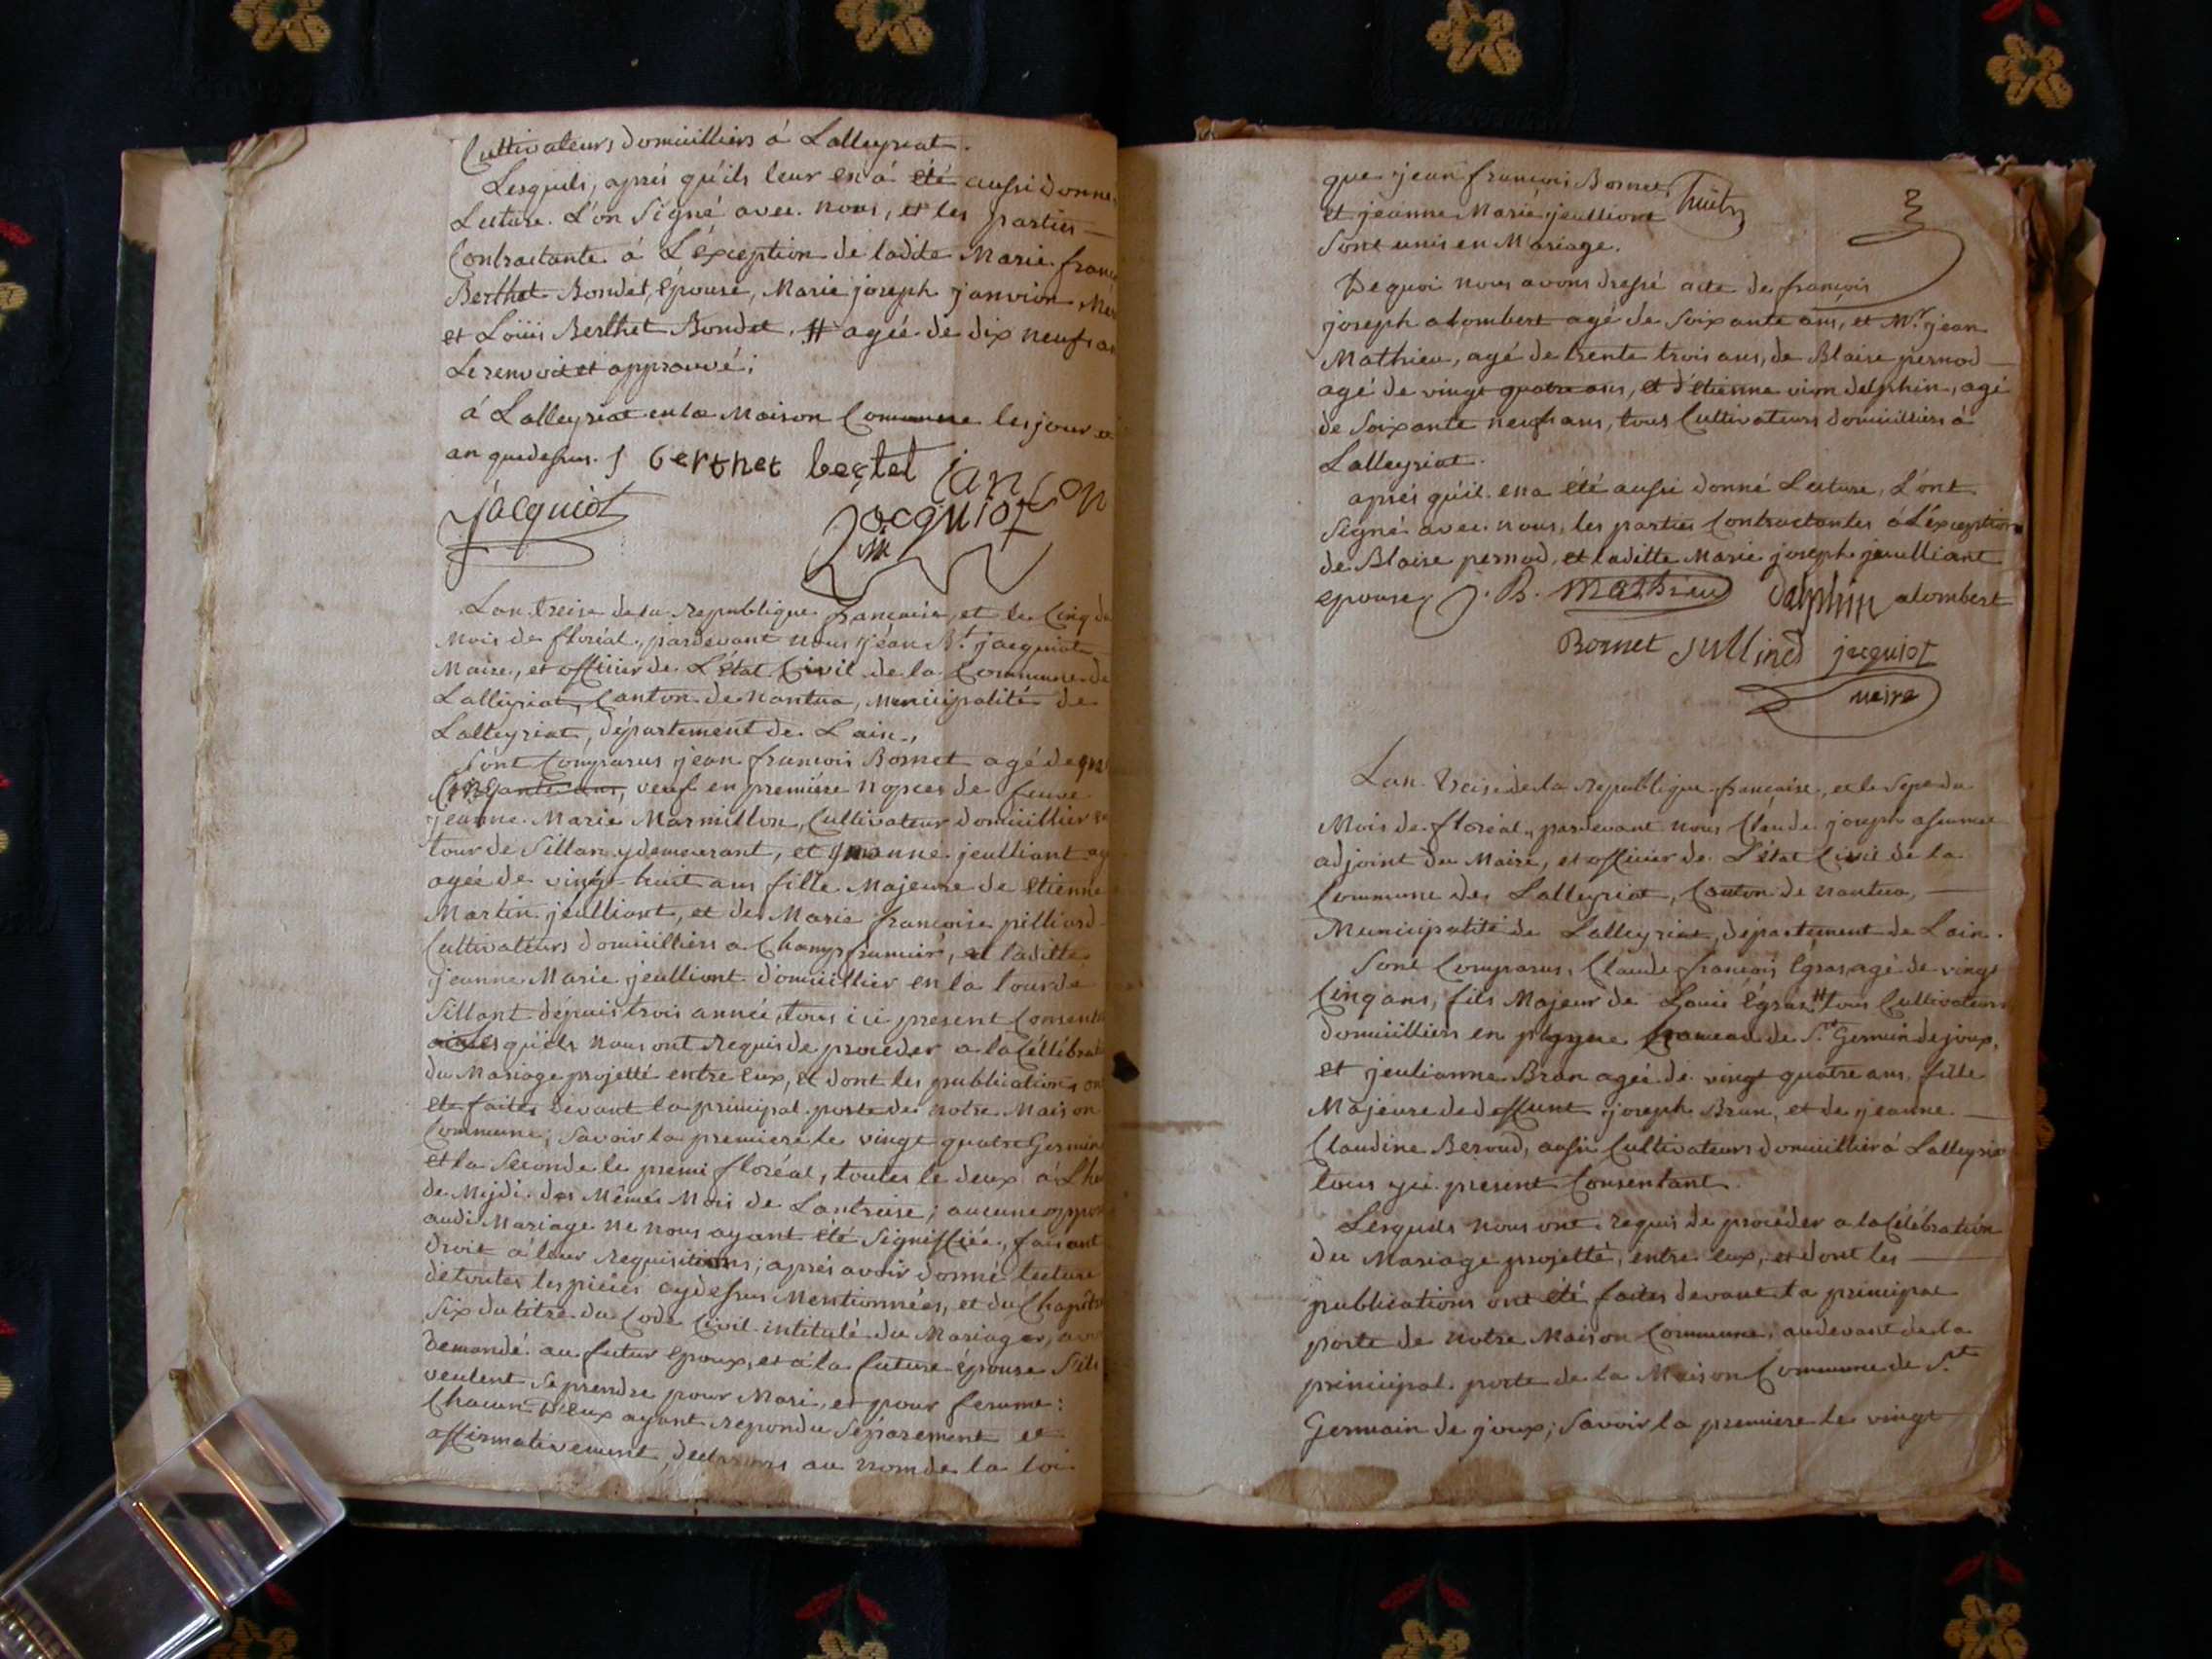 Cultivateurs domicilliers á Lalleyriat.
Lesquels, aprés qu'ils leur en á été aussi donné
Lecture. L'on Signé avec. nous, et les parties —
Contractante á L'éxception de ladite Marie. fran
Berthet Bondet, Epouse, Marie joseph janvion Mer
et Loüis Berthet Bondet. # agée de dix neuf an
Le renvoi et approuvé;
á Lalleyriat en la Maison Commune les jour et
an quedessus. berthet bertet janvion
jacquiot Jacquiot
Lan treise de la republique francaise, et le Cinq du
Mois de floréal, pardevant nous jean Bt. jacquiot
Maire, et officier de L'état Civil de la Commune de
Lalleyriat, Canton de Nantua, Municipalité de
Lalleyriat, département de Lain,
Sont Comparus jean francois Bornet agé de
Cinquante ans, veuf en premiere nopces de feuve
jeanne Marie Marmillon, Cultivateur domicillier
tour de Sillan y demeurant, et jeanne jeulliant ag
agée de vingt huit ans fille Majeure de Etienne
Martin jeulliant, et de Marie francoise pilliard
Cultivateurs domicilliers a Champfrumier, et laditte
jeanne Marie jeulliant domicillier en la tour de
Sillant dépuis trois année, tous ici present Consent
qu'ils nous ont requis de proceder a la Céllébrat
du Mariage projetté entre Eux, et dont les publications on
eté faites devant la principal. porte de notre Maison
Commune; Savoir la premiere le vingt quatre Germin
et la Seconde le premi floréal, toutes le deux á Lhe
de Mijdi. des Mêmes Mois de Lantreise; aucune oppos
audi Mariage ne nous ayant été Signiffiée, faisant
droit á leur requisitions; aprés avoir donné lecture
de toutes les piéces cydessus Mentionnées, et du Chapitr
Six du titre du Code Civil intitulé du Mariage, avo
demandé au futur Epoux, et á la future épouse S'ils
veulent Se prendre pour Mari, et pour femme:
Chacun D'eux ayant repondu Séparement et
affirmativement, declarons au nom de la loi
que jean francois Bornet, huit
et jeanne Marie jeulliant
Sont unis en Mariage.
De quoi nous avons dressé acte de francois
joseph alombert agé de Soixante ans, et Mr. jean
Mathieu, agé de trente trois ans, de Blaise pernod —
agé de vingt quatre ans, et d'étienne vion delphin, agé
de Soixante neuf ans, tous Cultivateurs domicilliers á
Lalleyriat.
aprés qu'il en a été aussi donné Lecture, L'ont
Signé avec. nous, les parties Contractantes á L'éxception
de Blaise pernod, et laditte Marie joseph jeulliant
epouse J. B. Mathieu Dalphin alombert
Bornet jullind jacquiot
maire
Lan treise de la republique francaise, et le Sept du
Mois de floréal, pardevant nous Claude joseph
adjoint du Maire, et officier de L'état Civil de la
Commune de Lalleyriat, Canton de nantua, —
Municipalité de Lalleyriat, département de Lain.
Sont Comparus, Claude francois Egraz agé de vingt
Cinq ans, fils Majeur de Louis Egraz # tous Cultivateurs
domicilliers en hameau de St Germain de joux,
et jeulianne Brun agée de vingt quatre ans, fille
Majeure de deffunt joseph Brun, et de jeanne. —
Claudine Beroud, aussi Cultivateurs domicillier á Lalleyria
tous yci present Consentant.
Lesquels nous ont requis de procéder a la Célébration
du Mariage projetté, entre eux, et dont les —
publications ont été faites devant la principal
porte de notre Maison Commune, audevant de la
principal. porte de la Maison Commune de St
Germain de joux; Savoir la premiere le vingt